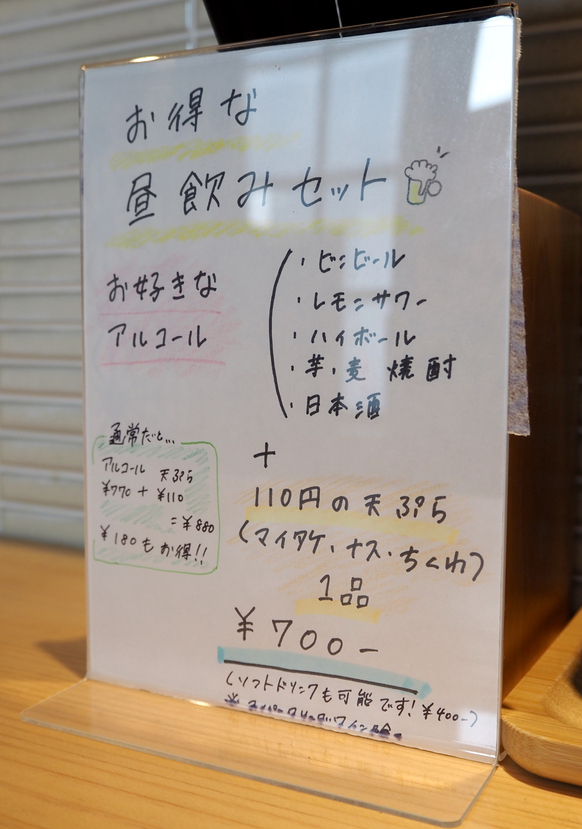 お得な
昼飲みセット
お好きな
アルコール
・ビンビール
・レモンサワー
・ハイボール
・芋・麦 焼酎
・日本酒
+
通常だと...
アルコール 天ぷら
¥770 + ¥110
=¥880
¥180もお得!!
110円の天ぷら
(マイタケ・ナス・ちくわ)
1品
¥700-
(ソフトドリンクも可能です!¥400-)